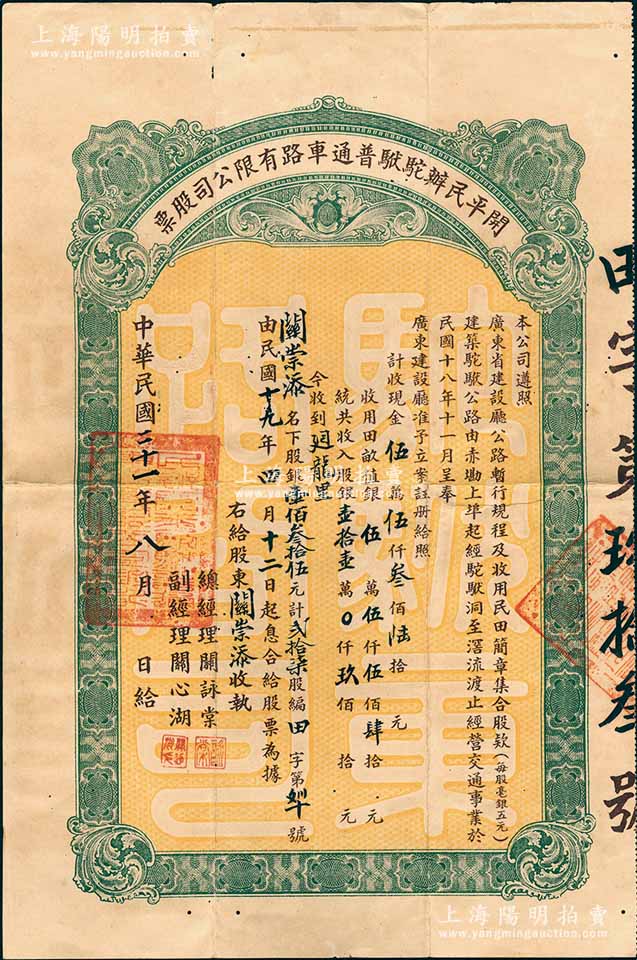 上海陽明拍賣
www.yangmingauction.com
上海陽明拍賣
www.yangmingauction.com
開平民辦駝駄普通車路有限公司股票
本公司遵照
廣東省建設廳公路暫行規程及收用民田簡章集合股欵(每股毫銀五元)
建築駝駄公路由赤墈上埠起經駝駄洞至滘流渡止經營交通事業於
民國十八年十一月呈奉
廣東建設廳准予立案註册給照
計收現金伍萬伍仟叁佰陸拾元
收用田畝值銀伍萬伍仟伍佰肆拾元
統共收入股銀壹拾壹萬〇仟玖佰拾元
今收到廻龍里
關崇添名下股銀壹佰叁拾伍元計弍拾柒股編田字第號
由民國十九年四月十二日起息合給股票為據
右給股東關崇添收執
總經理關詠棠
副經理關心湖
中華民國二十一年八月日給
田字第玖拾叁號
上海陽明拍賣
www.yangmingauction.com
上海陽明拍賣
www.yangmingauction.com